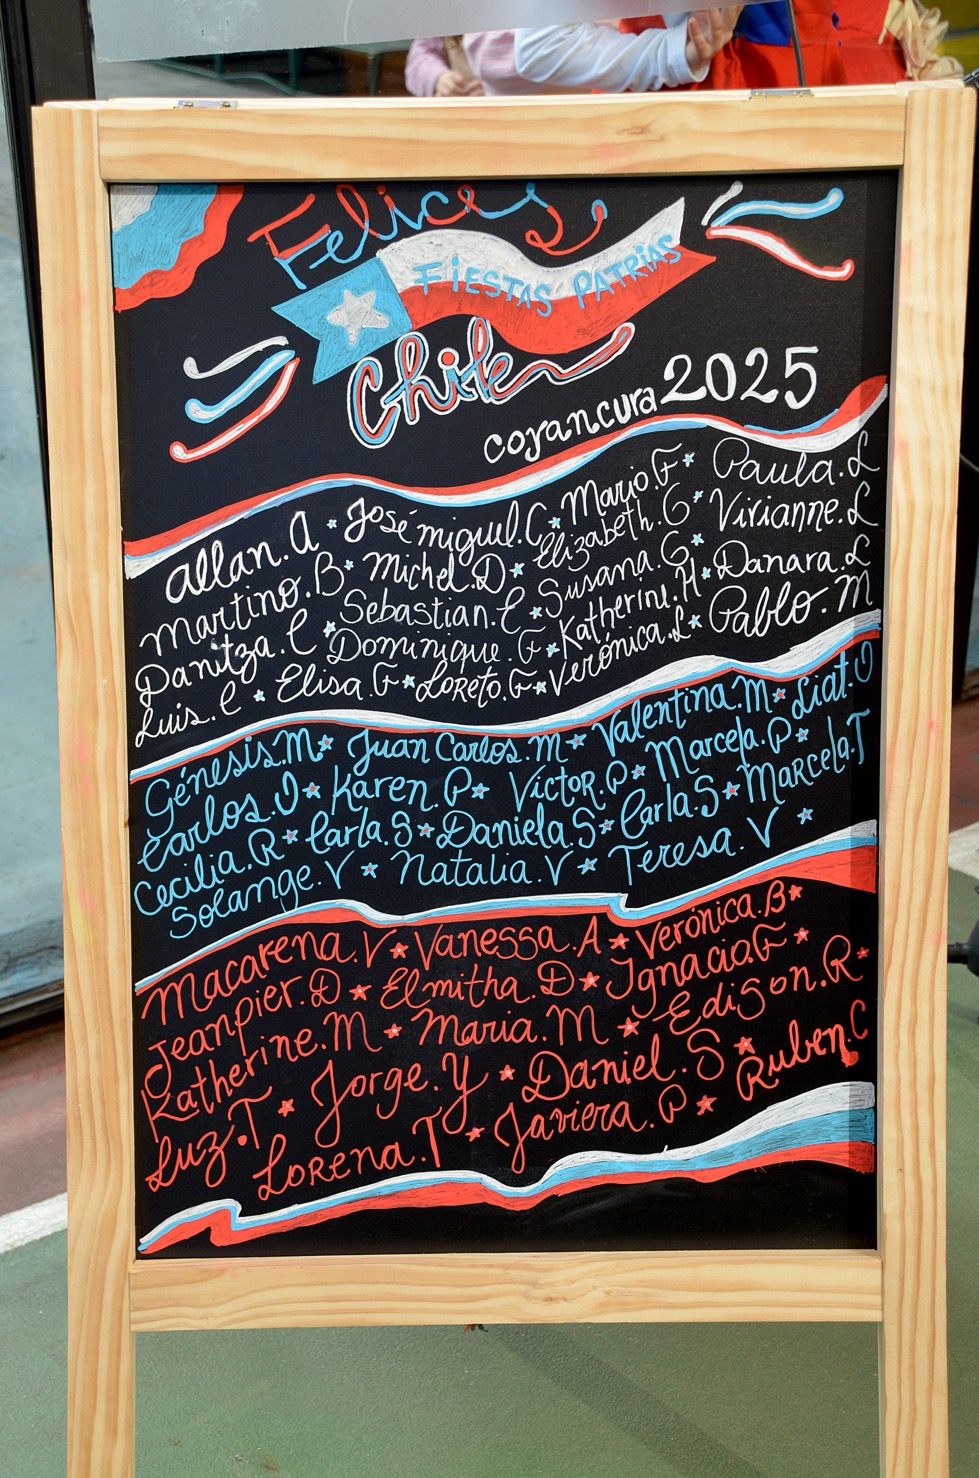 Felices
FIESTAS PATRIAS
Chile
coyancura 2025
allan.A * José miguel.C * Mario.F * Paula.L
Martino.B * Michel.D * Elizabeth.G * Virianne.L
Danitza.C * Sebastian.E * Susana.G * Danara.L
Luis.C * Elisa.F * Dominique.F * Katherine.H * Pablo.M
Loreto.G * Verónica.L
Génesis.M * Juan Carlos.M * Valentina.M * Liat.O
Carlos.O * Karen.P * Victor.P * Marcela.P *
Cecilia.R * Carla.S * Daniela.S * Carla.S * Marcela.T
Solange.V * Natalia.V * Teresa.V *
Macarena.V * Vanessa.A * Verónica.B *
Jeanpier.D * Elmitha.D * Ignacio.F *
Katherine.M * Maria.M * Edison.R *
Luz.T * Jorge.Y * Daniel.S *
Lorena.T * Javiera.P * Ruben.C